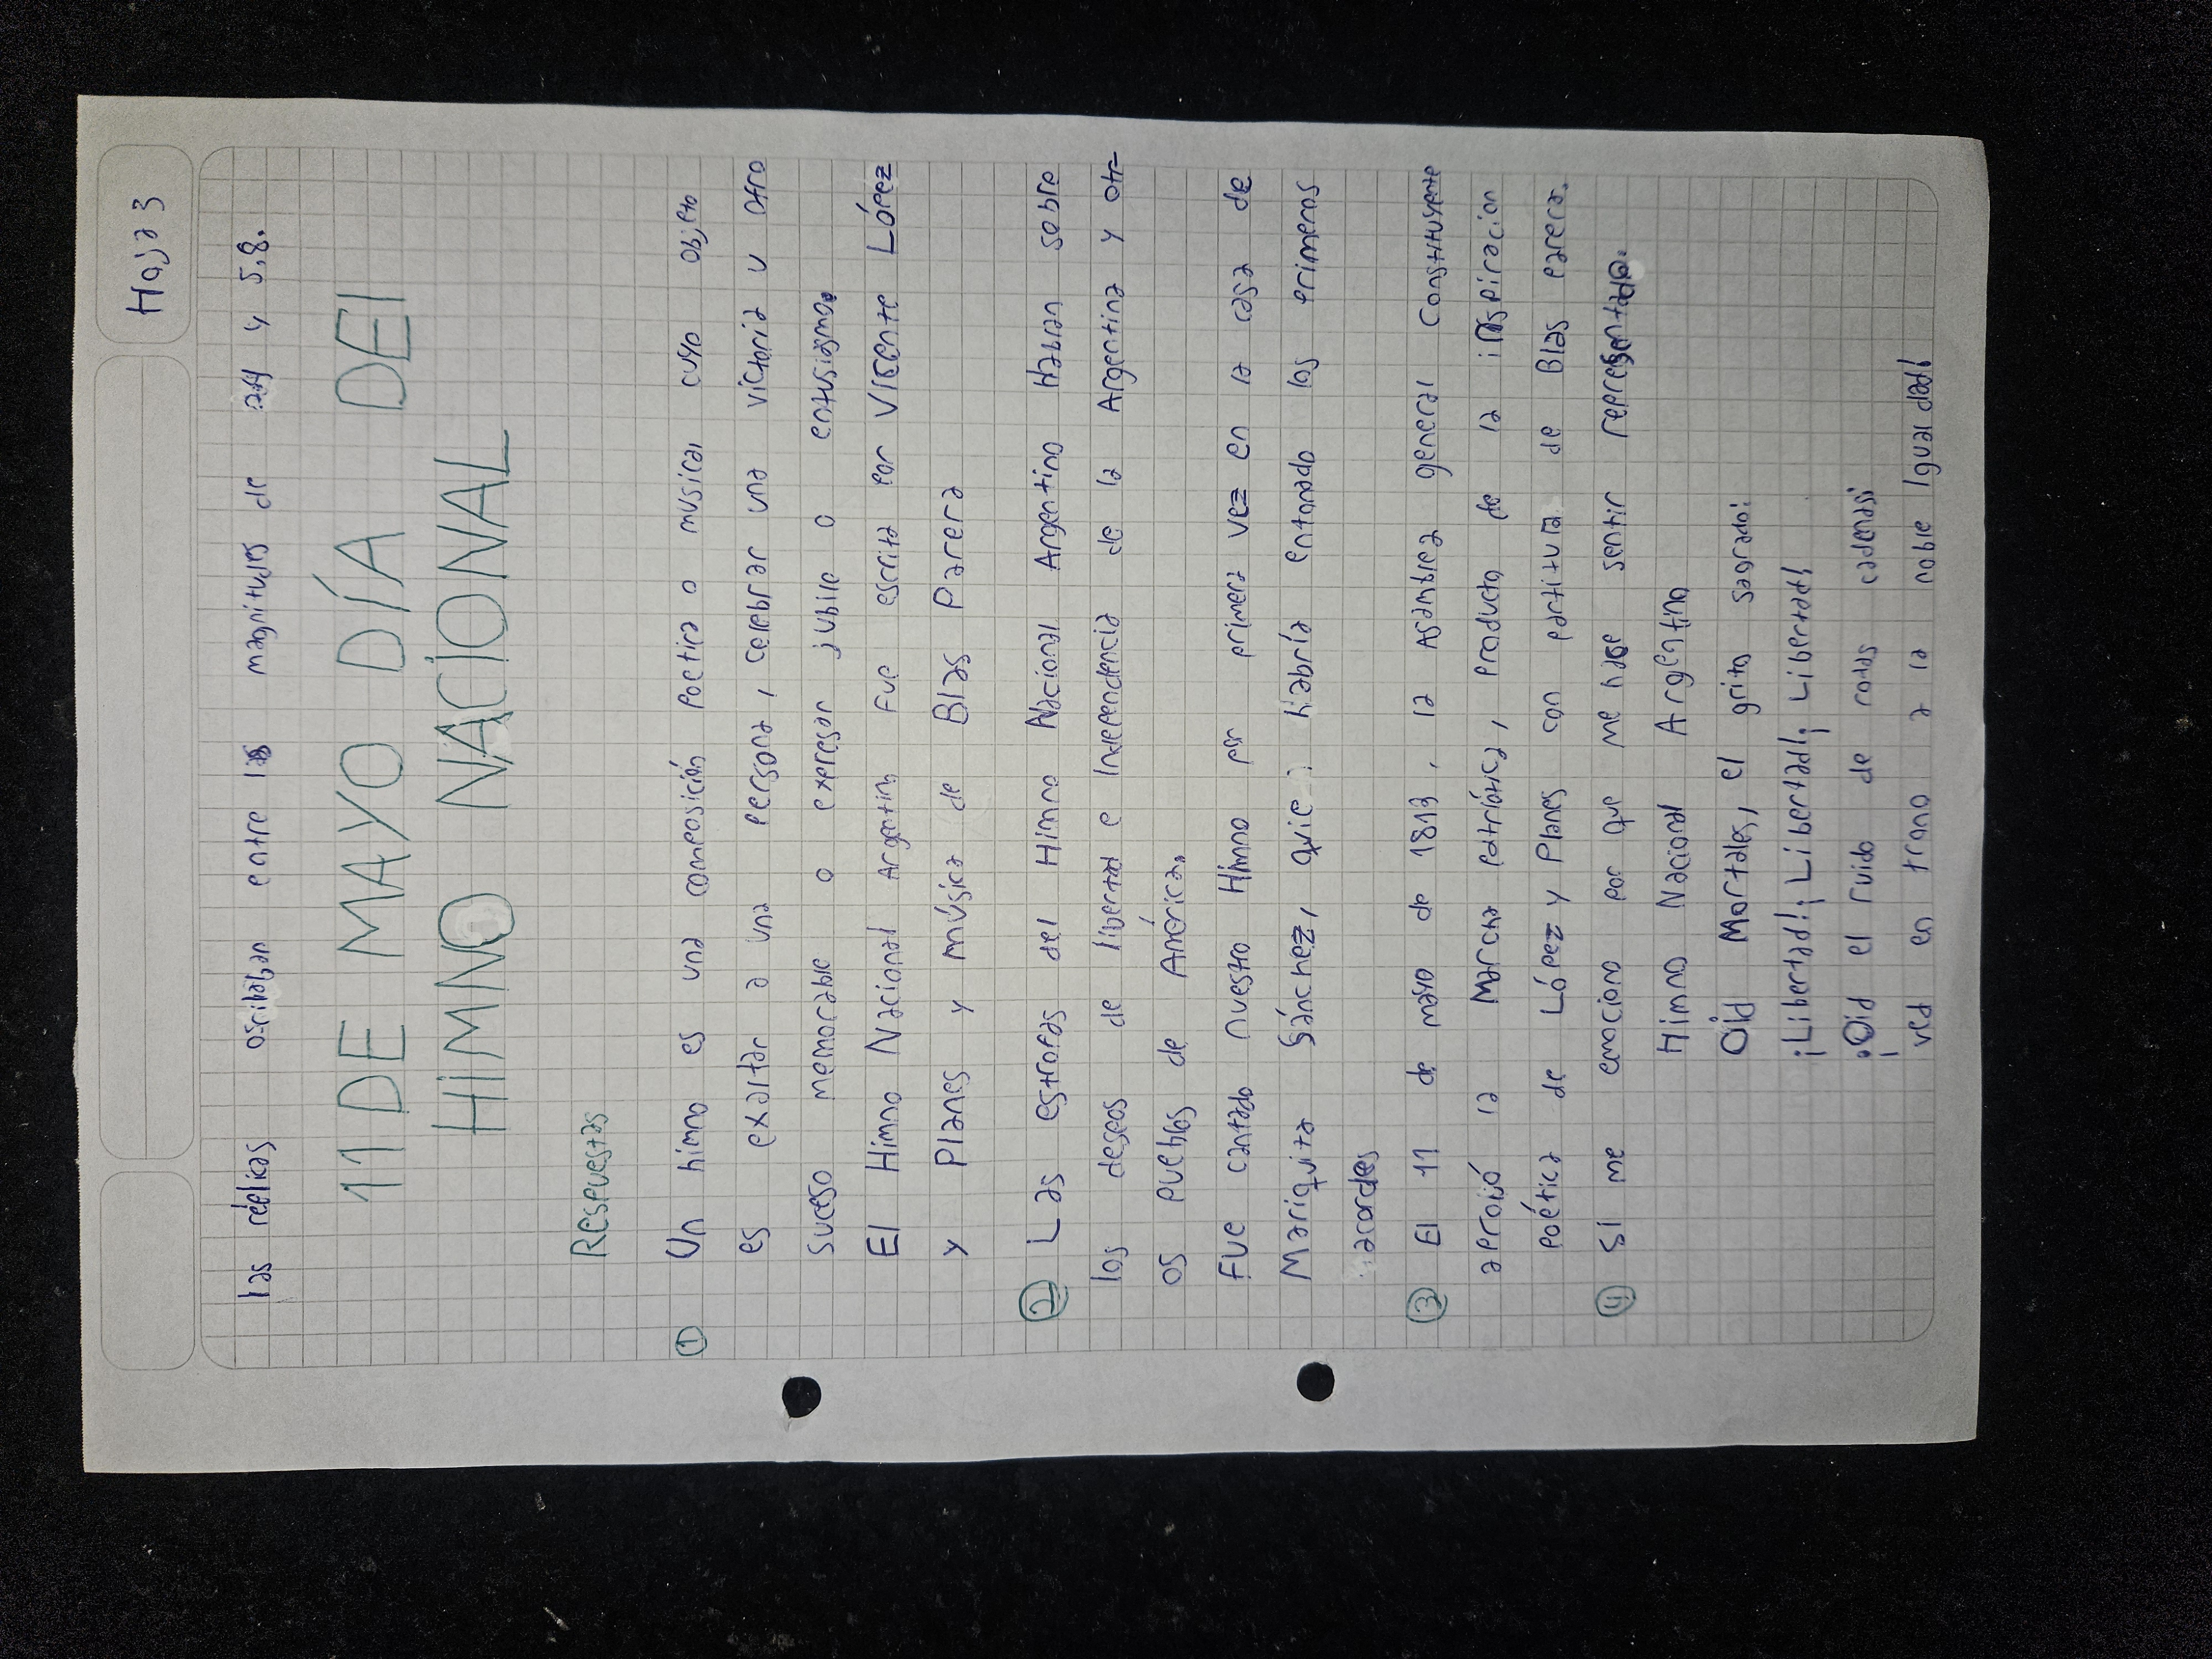 Hoja 3
las réplicas oscilaban entre las magnitudes de y 5,8.
11 DE MAYO DÍA DEl
HiMNO NACiONAL
Respuestas
① Un himno es una composición poetica o musical cuyo objeto
es exaltar a una persona, celebrar una victoria u otro
suceso memorable o expresar jubilo o entusiasmo.
El Himno Nacional Argentino Fue escrita por Vicente López
y Planes y música de Blas Parera
② Las estrofas del Himno Nacional Argentino Hablan sobre
los deseos de libertad e Independencia de la Argentina y otr-
os pueblos de América.
Fue cantado nuestro Himno por primera vez en la casa de
Mariquita Sánchez, quie habría entonado los primeros
acordes
③ El 11 de mayo de 1813, la Asamblea general Constituyente
aprobó la Marcha patriótica, producto de la inspiracion
poética de López y Planes con partitura de Blas parera.
④ SI me emociono por que me hase sentir representado.
Himno Nacional Argentino
Oíd Mortales, el grito sagrado:
¡Libertad!¡Libertad!¡Libertad!
¡Oid el ruido de rotas cadenas!
ved en trono a la noble Igualdad!